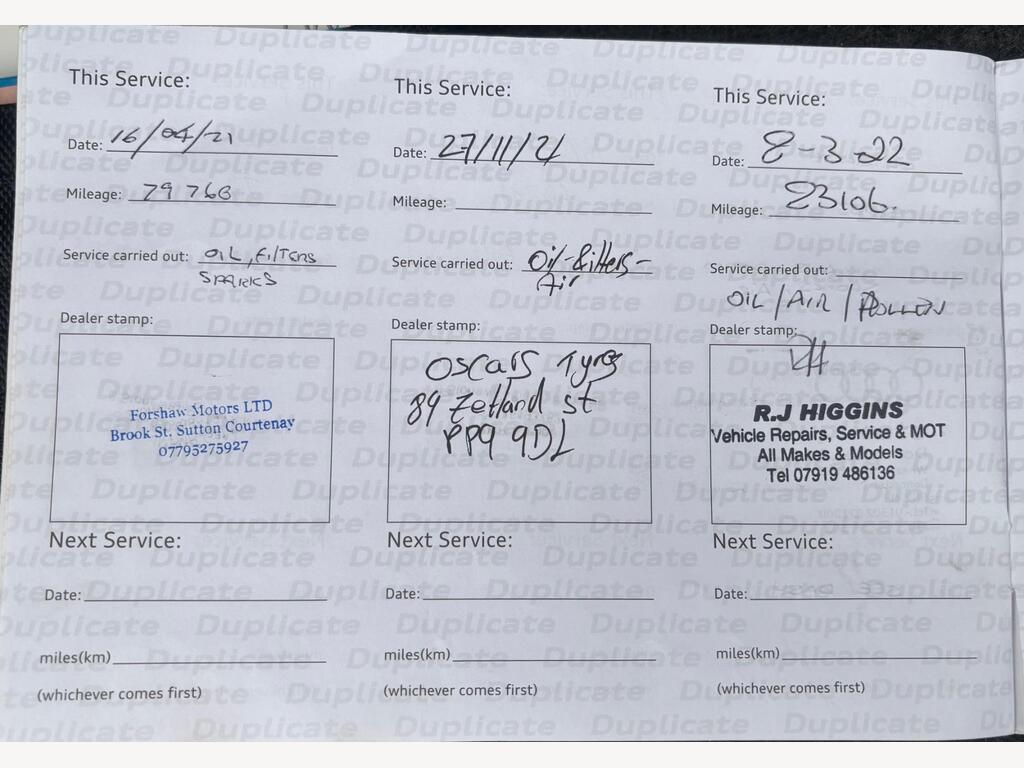 This Service:
Date: 16/04/21
Mileage: 79768
Service carried out: OIL, FILTERS
SPARKS
Dealer stamp:
Forshaw Motors LTD
Brook St. Sutton Courtenay
07795275927
Next Service:
Date:
miles(km)
(whichever comes first)
This Service:
Date: 27/11/21
Mileage:
Service carried out: Oil-filters-
Air
Dealer stamp:
Oscars Tyres
89 Zetland st
PP9 9DL
Next Service:
Date:
miles(km)
(whichever comes first)
This Service:
Date: 8-3-22
Mileage: 83106.
Service carried out:
OIL / AIR / POLLEN
Dealer stamp:
R.J HIGGINS
Vehicle Repairs, Service & MOT
All Makes & Models
Tel 07919 486136
Next Service:
Date:
miles(km)
(whichever comes first)
Duplicate